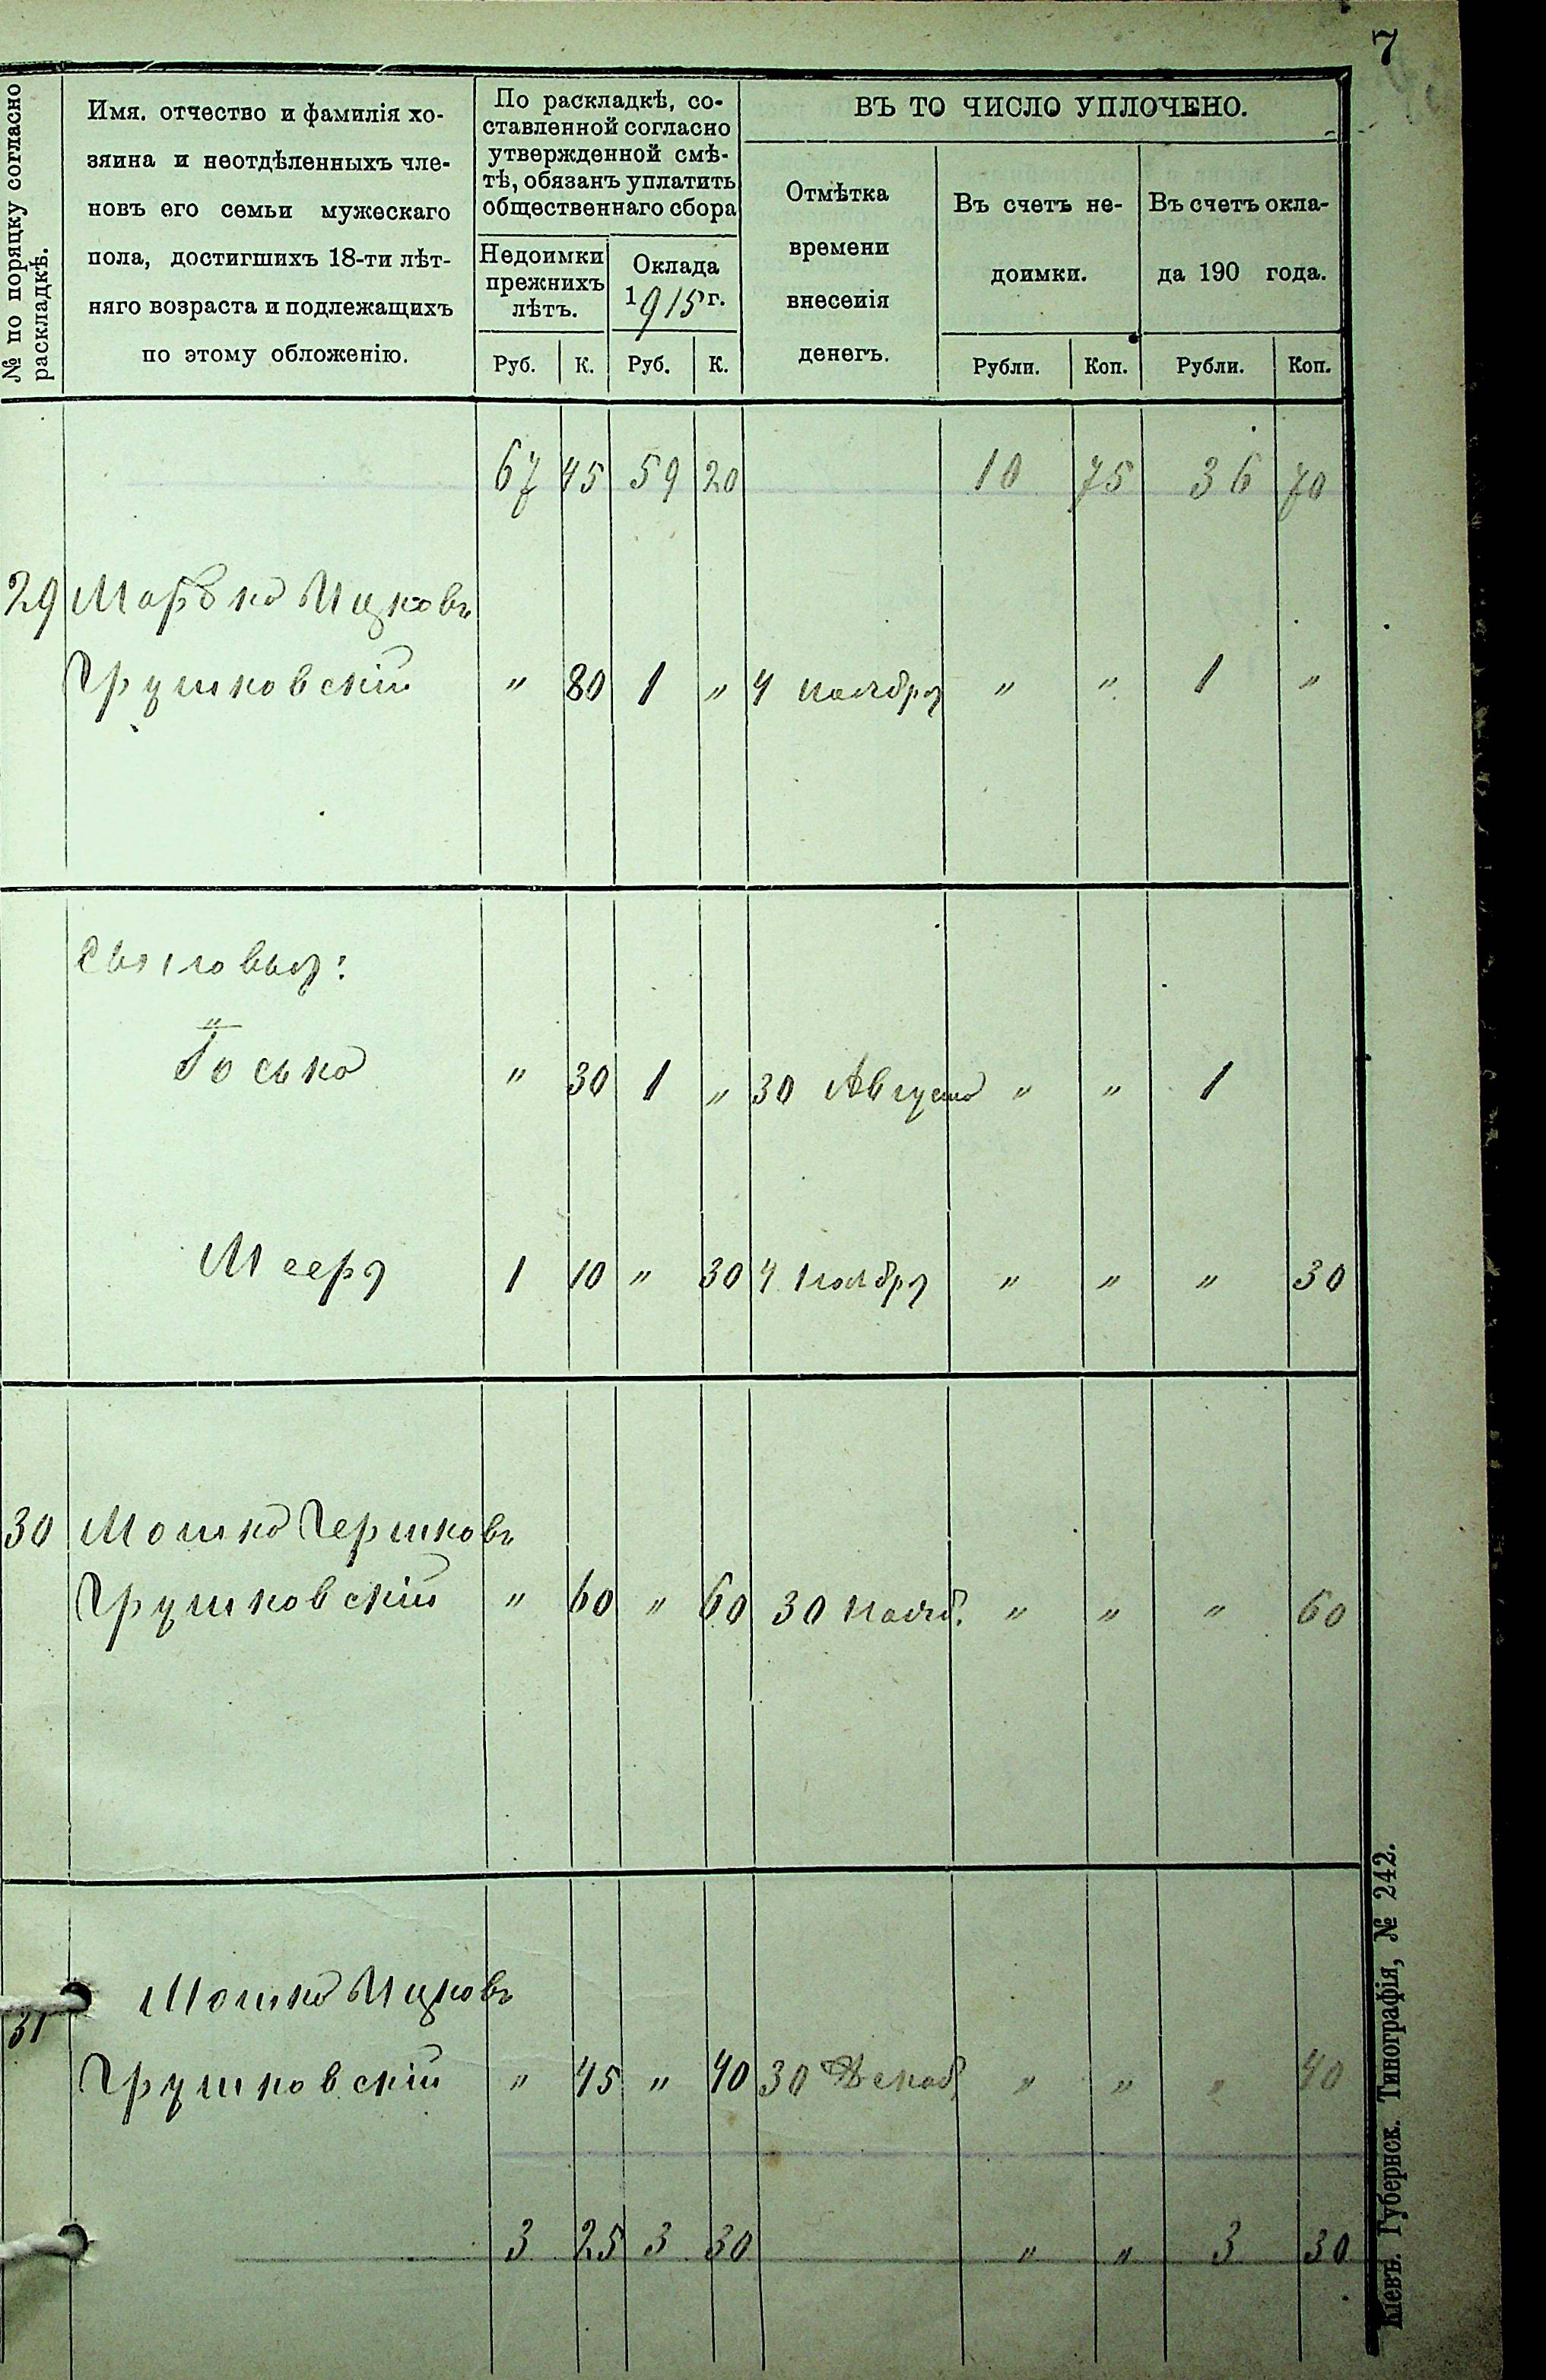 7
№ по порядку согласно раскладкѣ.
Имя, отчество и фамилія хо-
зяина и неотдѣленныхъ чле-
новъ его семьи мужескаго
пола, достигшихъ 18-ти лѣт-
няго возраста и подлежащихъ
по этому обложенію.
По раскладкѣ, со-
ставленной согласно
утвержденной смѣ-
тѣ, обязанъ уплатить
общественнаго сбора
Недоимки
прежнихъ
лѣтъ.
Оклада
1915 г.
Руб. К. Руб. К.
ВЪ ТО ЧИСЛО УПЛОЧЕНО.
Отмѣтка
времени
внесенія
денегъ.
Въ счетъ не-
доимки.
Въ счетъ окла-
да 190 года.
Рубли. Коп. Рубли. Коп.
67 45 59 20 10 75 36 70
29 Марько Ицковъ
Грушковскій " 80 1 " 4 ноября " " 1 "
Сыновья:
Іосько " 30 1 " 30 Августа " " 1
Мееръ 1 10 " 30 4 ноября " " " 30
30 Мошко Гершковъ
Грушковскій " 60 " 60 30 нояб. " " " 60
31 Мошко Ицковъ
Грушковскій " 45 " 40 30 Декаб. " " " 40
3 25 3 30 " " 3 30
Кіевъ. Губернск. Типографія, № 242.